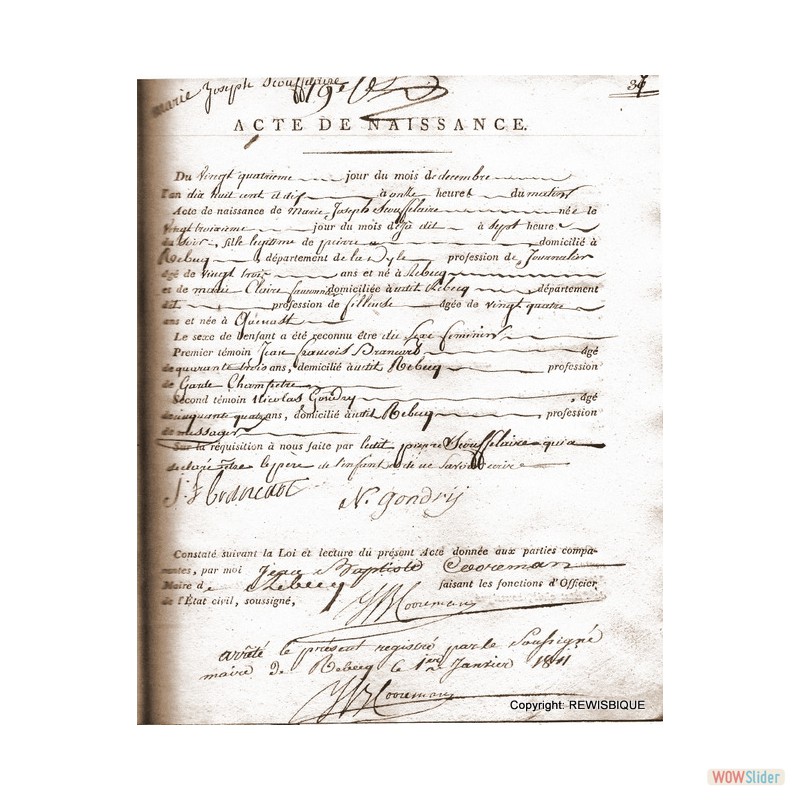 marie Joseph Scouffelaire
37
ACTE DE NAISSANCE.
Du vingt quatrieme jour du mois de decembre
l'an dix huit cent et dix à onze heures du matin
Acte de naissance de Marie Joseph Scouffelaire née le
vingt troixieme jour du mois déjà dit à sept heure
du soir, fille legitime de pierre domicilié à
Rebecq, département de la Dyle profession de Journalier
âgé de vingt trois ans et né à Rebecq
et de marie Claire domiciliée audit Rebecq département
dit profession de fileuse âgée de vingt quatre
ans et née à Quenast
Le sexe de l'enfant a été reconnu être du Sexe feminin
Premier témoin Jean francois Brancart âgé
de quarante trois ans, domicilié audit Rebecq profession
de Garde Champetre
Second témoin Nicolas Gondry, âgé
de cinquante quatre ans, domicilié audit Rebecq, profession
de messager
Sur la réquisition à nous faite par ledit pierre Scouffelaire qui a
declaré être le pere de l'enfant et de ne savoir ecrire
N. gondrij
Constaté suivant la Loi et lecture du présent Acte donnée aux parties compa-
rantes, par moi Jean Baptiste Cooreman
Maire de Rebecq faisant les fonctions d'Officier
de l'État civil, soussigné,
JB Cooreman
arrêté le présent registre par le Soussigné
maire de Rebecq le 1er Janvier 1811
JB Cooreman
Copyright: REWISBIQUE
WOWSlider